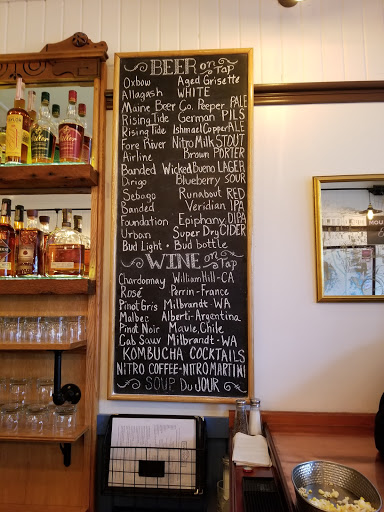 BEER on Tap
Oxbow Aged Grisette
Allagash WHITE
Maine Beer Co. Peeper PALE
Rising Tide German PILS
Rising Tide Ishmael Copper ALE
Fore River Nitro Milk STOUT
Airline Brown PORTER
Banded Wicked Bueno LAGER
Dirigo Blueberry SOUR
Sebago Runabout RED
Banded Veridian IPA
Foundation Epiphany DIPA
Urban Super Dry CIDER
Bud Light • Bud bottle
WINE on Tap
Chardonnay William Hill - CA
Rosé Perrin - France
Pinot Gris Milbrandt - WA
Malbec Alberti - Argentina
Pinot Noir Maule, Chile
Cab Sauv Milbrandt - WA
KOMBUCHA COCKTAILS
NITRO COFFEE - NITRO MARTINI
SOUP Du JOUR